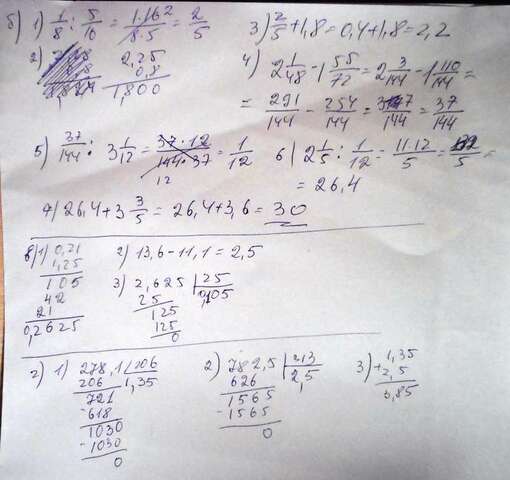 б) 1) 1/8 : 5/16 = 1·16²/8·5 = 2/5
3) 2/5 + 1,8 = 0,4 + 1,8 = 2,2
2) 2,25
0,8
1,800
4) 2 1/48 - 1 55/72 = 2 3/144 - 1 110/144 =
= 291/144 - 254/144 = 37/144 = 37/144
5) 37/144 : 3 1/12 = 37·12/144·37 = 1/12
12
6) 2 1/5 : 1/12 = 11·12/5 = 132/5 =
= 26,4
7) 26,4 + 3 3/5 = 26,4 + 3,6 = 30
в) 1) 0,21
1,25
105
42
21
0,2625
2) 13,6 - 11,1 = 2,5
3) 2,625 | 25
25 0,105
125
125
0
г) 1) 278,1 | 206
206 1,35
721
-618
1030
-1030
0
2) 782,5 | 313
626 2,5
1565
-1565
0
3) 1,35
+2,5
3,85